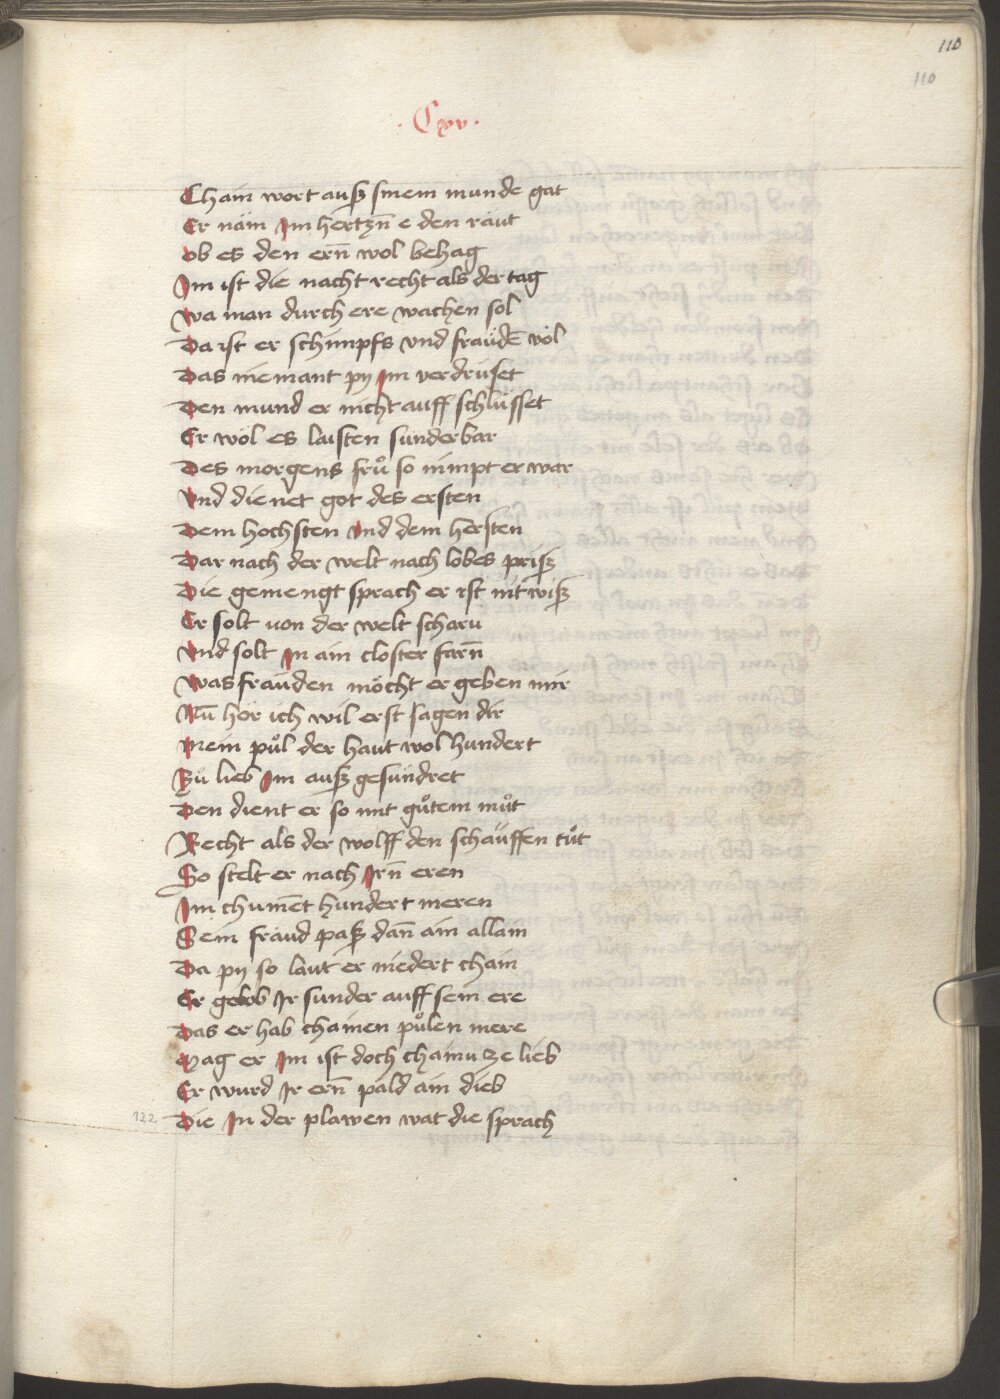 110
110
· Cxv ·
Chain wort auß sinem munde gat
Er näm Im hertzn̄ e den raut
ob es den ern̄ wol behag
Im ist die nacht recht als der tag
Wa man durch ere wachen sol
Da ist er schimpfs vnd fräudē vol
Das niemant py Im verdrüset
Den mund er nicht auff schlüsset
Er wöl es laisten sunderbar
Des morgens frů so nimpt er war
Vnd dienet got des ersten
Dem hochsten Vnd dem hersten
Dar nach der welt nach lobes priß
Die gemengt sprach er ist nit wiß
Er solt von der welt scharn
Vnd solt In ain closter farn̄
Was fräuden möcht er geben mir
Nū hör ich wil erst sagen dir
Mein půl der haut wol hundert
Zů lieb Im auß gesundret
Den dient er so mit gůtem můt
Recht als der wolff den schäuffen tůt
So stelt er nach Irn̄ eren
Im chumēt hundert meren
Sein fräud paß dan̄ ain allain
Da py so laut er niedert chain
Er gelob Ir sunder auff sein ere
Das er hab chainen půlen mere
Mag er Im ist doch chainu ze lieb
Er wurd Ir ern̄ pald ain dieb
122 Die In der plawen wat die sprach